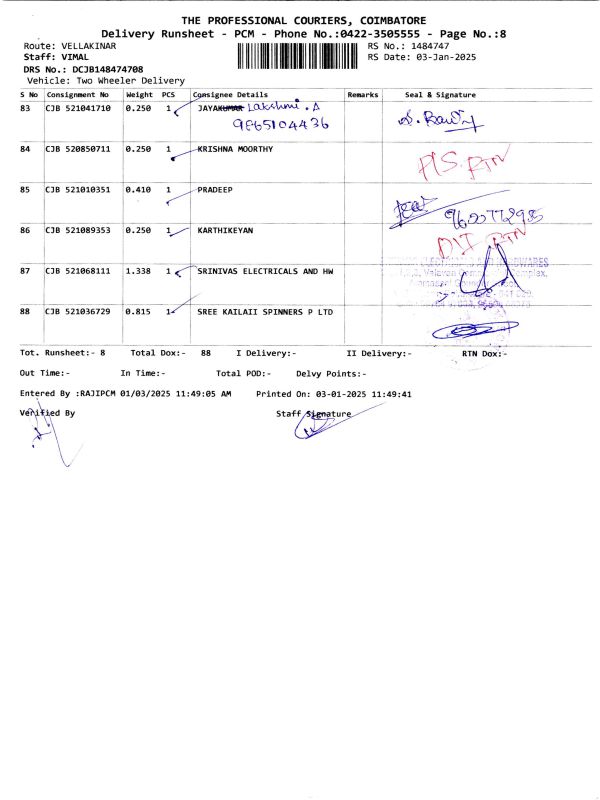 THE PROFESSIONAL COURIERS, COIMBATORE
Delivery Runsheet - PCM - Phone No.:0422-3505555 - Page No.:8
Route: VELLAKINAR RS No.: 1484747
Staff: VIMAL RS Date: 03-Jan-2025
DRS No.: DCJB148474708
Vehicle: Two Wheeler Delivery
S No Consignment No Weight PCS Consignee Details Remarks Seal & Signature
83 CJB 521041710 0.250 1 JAYAKUMAR Lakshmi . A
9865104436
84 CJB 520850711 0.250 1 KRISHNA MOORTHY RTN
85 CJB 521010351 0.410 1 PRADEEP
86 CJB 521089353 0.250 1 KARTHIKEYAN RTN
87 CJB 521068111 1.338 1 SRINIVAS ELECTRICALS AND HW
88 CJB 521036729 0.815 1 SREE KAILAII SPINNERS P LTD
Tot. Runsheet:- 8 Total Dox:- 88 I Delivery:- II Delivery:- RTN Dox:-
Out Time:- In Time:- Total POD:- Delvy Points:-
Entered By :RAJIPCM 01/03/2025 11:49:05 AM Printed On: 03-01-2025 11:49:41
Verified By Staff Signature